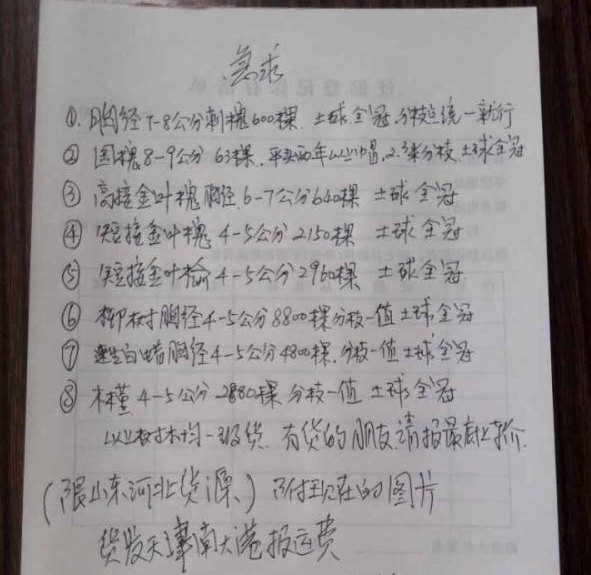 急求
①. 胸径7-8公分刺槐600棵. 土球全冠.分枝点统一就行
② 国槐8-9公分63棵. 平头两年以上巾冒,2.3米分枝.土球全冠
③ 高接金叶槐胸径.6-7公分640棵 土球全冠
④ 短接金叶槐4-5公分2150棵 土球全冠
⑤ 短接金叶榆4-5公分2960棵 土球全冠
⑥ 柳树胸径4-5公分8800棵分枝一值土球全冠
⑦ 速生白蜡胸径4-5公分4800棵.分枝一值土球全冠
⑧ 木槿4-5公分2880棵 分枝一值 土球全冠
以上树木均一级货. 有货的朋友.请报最底上车价.
(限山东河北货源、) 附现在的图片
货发天津南大港报运费